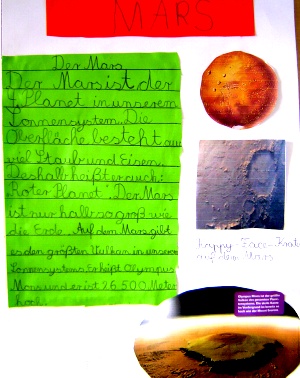 MARS
Der Mars
Der Mars ist der
4. Planet in unserem
Sonnensystem. Die
Oberfläche besteht aus
viel Staub und Eisen.
Deshalb heißt er auch:
"Roter Planet". Der Mars
ist nur halb so groß wie
die Erde. Auf dem Mars gibt
es den größten Vulkan in unserem
Sonnensystem. Er heißt Olympus
Mons und er ist 26.500 Meter
hoch.
happy-Face-Krater
auf dem Mars